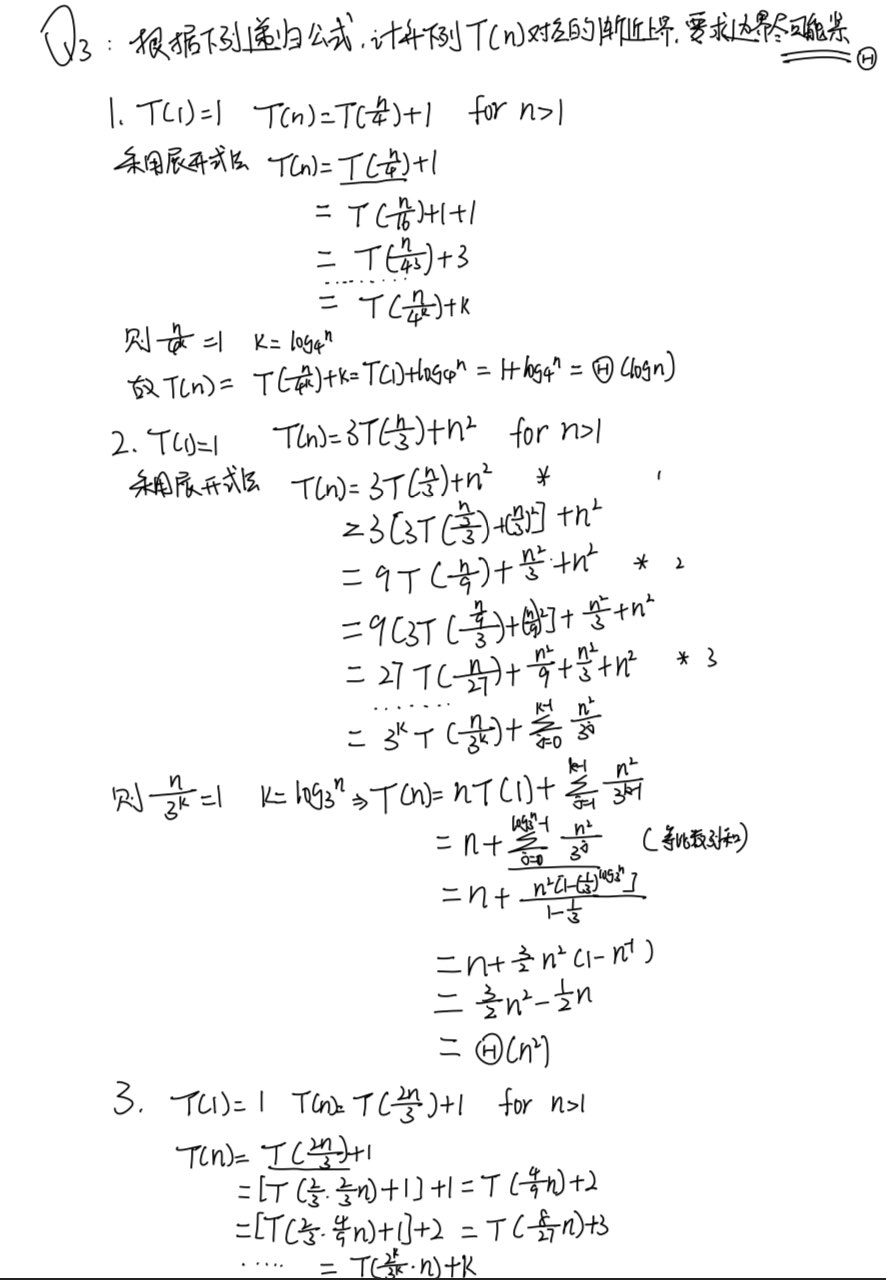 Q3: 根据下列递归公式,计算下列T(n)对应的渐近上界,要求边界尽可能紧 Θ
1. T(1)=1 T(n)=T(n/4)+1 for n>1
采用展开式法 T(n)=T(n/4)+1
= T(n/16)+1+1
= T(n/4³)+3
........
= T(n/4^k)+k
则 n/4^k=1 k=log₄ⁿ
故T(n)= T(n/4^k)+k=T(1)+log₄ⁿ = 1+log₄ⁿ = Θ(logn)
2. T(1)=1 T(n)=3T(n/3)+n² for n>1
采用展开式法 T(n)=3T(n/3)+n² * 1
=3[3T((n/3)/3)+(n/3)²]+n²
=9T(n/9)+n²/3+n² * 2
=9[3T((n/9)/3)+(n/9)²]+n²/3+n²
=27T(n/27)+n²/9+n²/3+n² * 3
.......
=3^k T(n/3^k)+∑_{i=0}^{k-1} n²/3^i
则 n/3^k=1 k=log₃ⁿ ⇒ T(n)=nT(1)+∑_{i=1}^{k-1} n²/3^{k-1}
=n+∑_{i=0}^{log₃ⁿ-1} n²/3^i (等比数列和)
=n+n²[1-(1/3)^{log₃ⁿ}]/(1-1/3)
=n+3/2 n²(1-n⁻¹)
=3/2 n²-1/2 n
=Θ(n²)
3. T(1)=1 T(n)=T(2n/3)+1 for n>1
T(n)=T(2n/3)+1
=[T(2/3·2/3n)+1]+1=T(4/9n)+2
=[T(2/3·4/9n)+1]+2=T(8/27n)+3
..... =T(2^k/3^k·n)+k